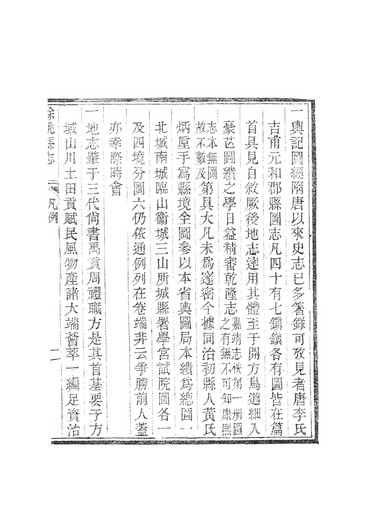 一輿記圖經隋唐以來史志已多著錄可攷見者唐李氏
吉甫元和郡縣圖志凡四十有七鎮鎮各有圖皆在篇
首具見自敘厥後地志遞用其體至于開方鳥道細入
豪芒圖繢之學日益精審乾隆志嘉靖志佚第一册圖之有無不可知康熙
志本無圖故不數及第具大凡未爲邃密今據同治初縣人黃氏
炳垕手寫縣境全圖參以本省輿圖局本繢爲總圖一
北城南城臨山衞城三山所城縣署學宮試院圖各一
及四境分圖六仍依通例列在卷端非云爭勝前人葢
亦幸際時會
一地志肇于三代尙書禹貢周禮職方是其首基要于方
域山川土田貢賦民風物產諸大端薈萃一編足資治
餘姚縣志
凡例
一